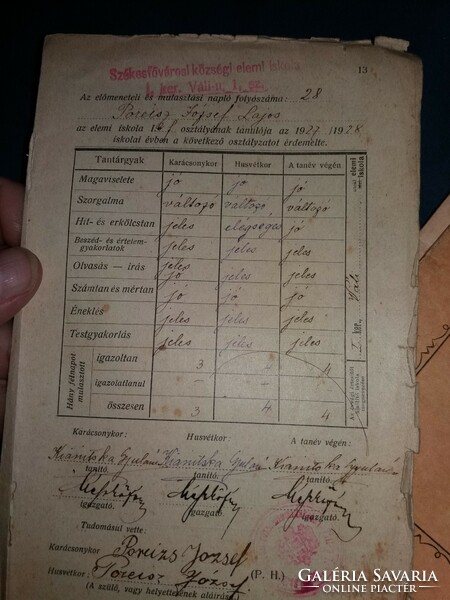 Székesfővárosi községi elemi iskola
I. ker. Váli-u. 1. sz.
13
Az előmeneteli és mulasztási napló folyószáma: 28
József Lajos
az elemi iskola I. osztályának tanulója az 1927/1928.
iskolai évben a következő osztályzatot érdemelte.
Tantárgyak Karácsonykor Husvétkor A tanév végén
Magaviselete jó jó jó
Szorgalma változó változó változó
Hit- és erkölcstan jeles elégséges jó
Beszéd- és értelemgyakorlatok jeles jeles jeles
Olvasás — irás jeles jó jeles jeles
Számtan és mértan jó jó jó
Éneklés jeles jeles jeles
Testgyakorlás jeles jeles jeles
Hány félnapot mulasztott
igazoltan 3 4 4
igazolatlanul – – –
összesen 3 4 4
Karácsonykor: Husvétkor: A tanév végén:
Kranitska Gyuláné Kranitska Gyuláné Kranitska Gyuláné
tanító. tanító. tanító.
igazgató. igazgató. igazgató.
Tudomásul vette:
Karácsonykor József
Husvétkor: József (P. H.)
(A szülő, vagy helyettesének aláírása)
GALÉRIA SAVARIA
ONLINE PIACTÉR